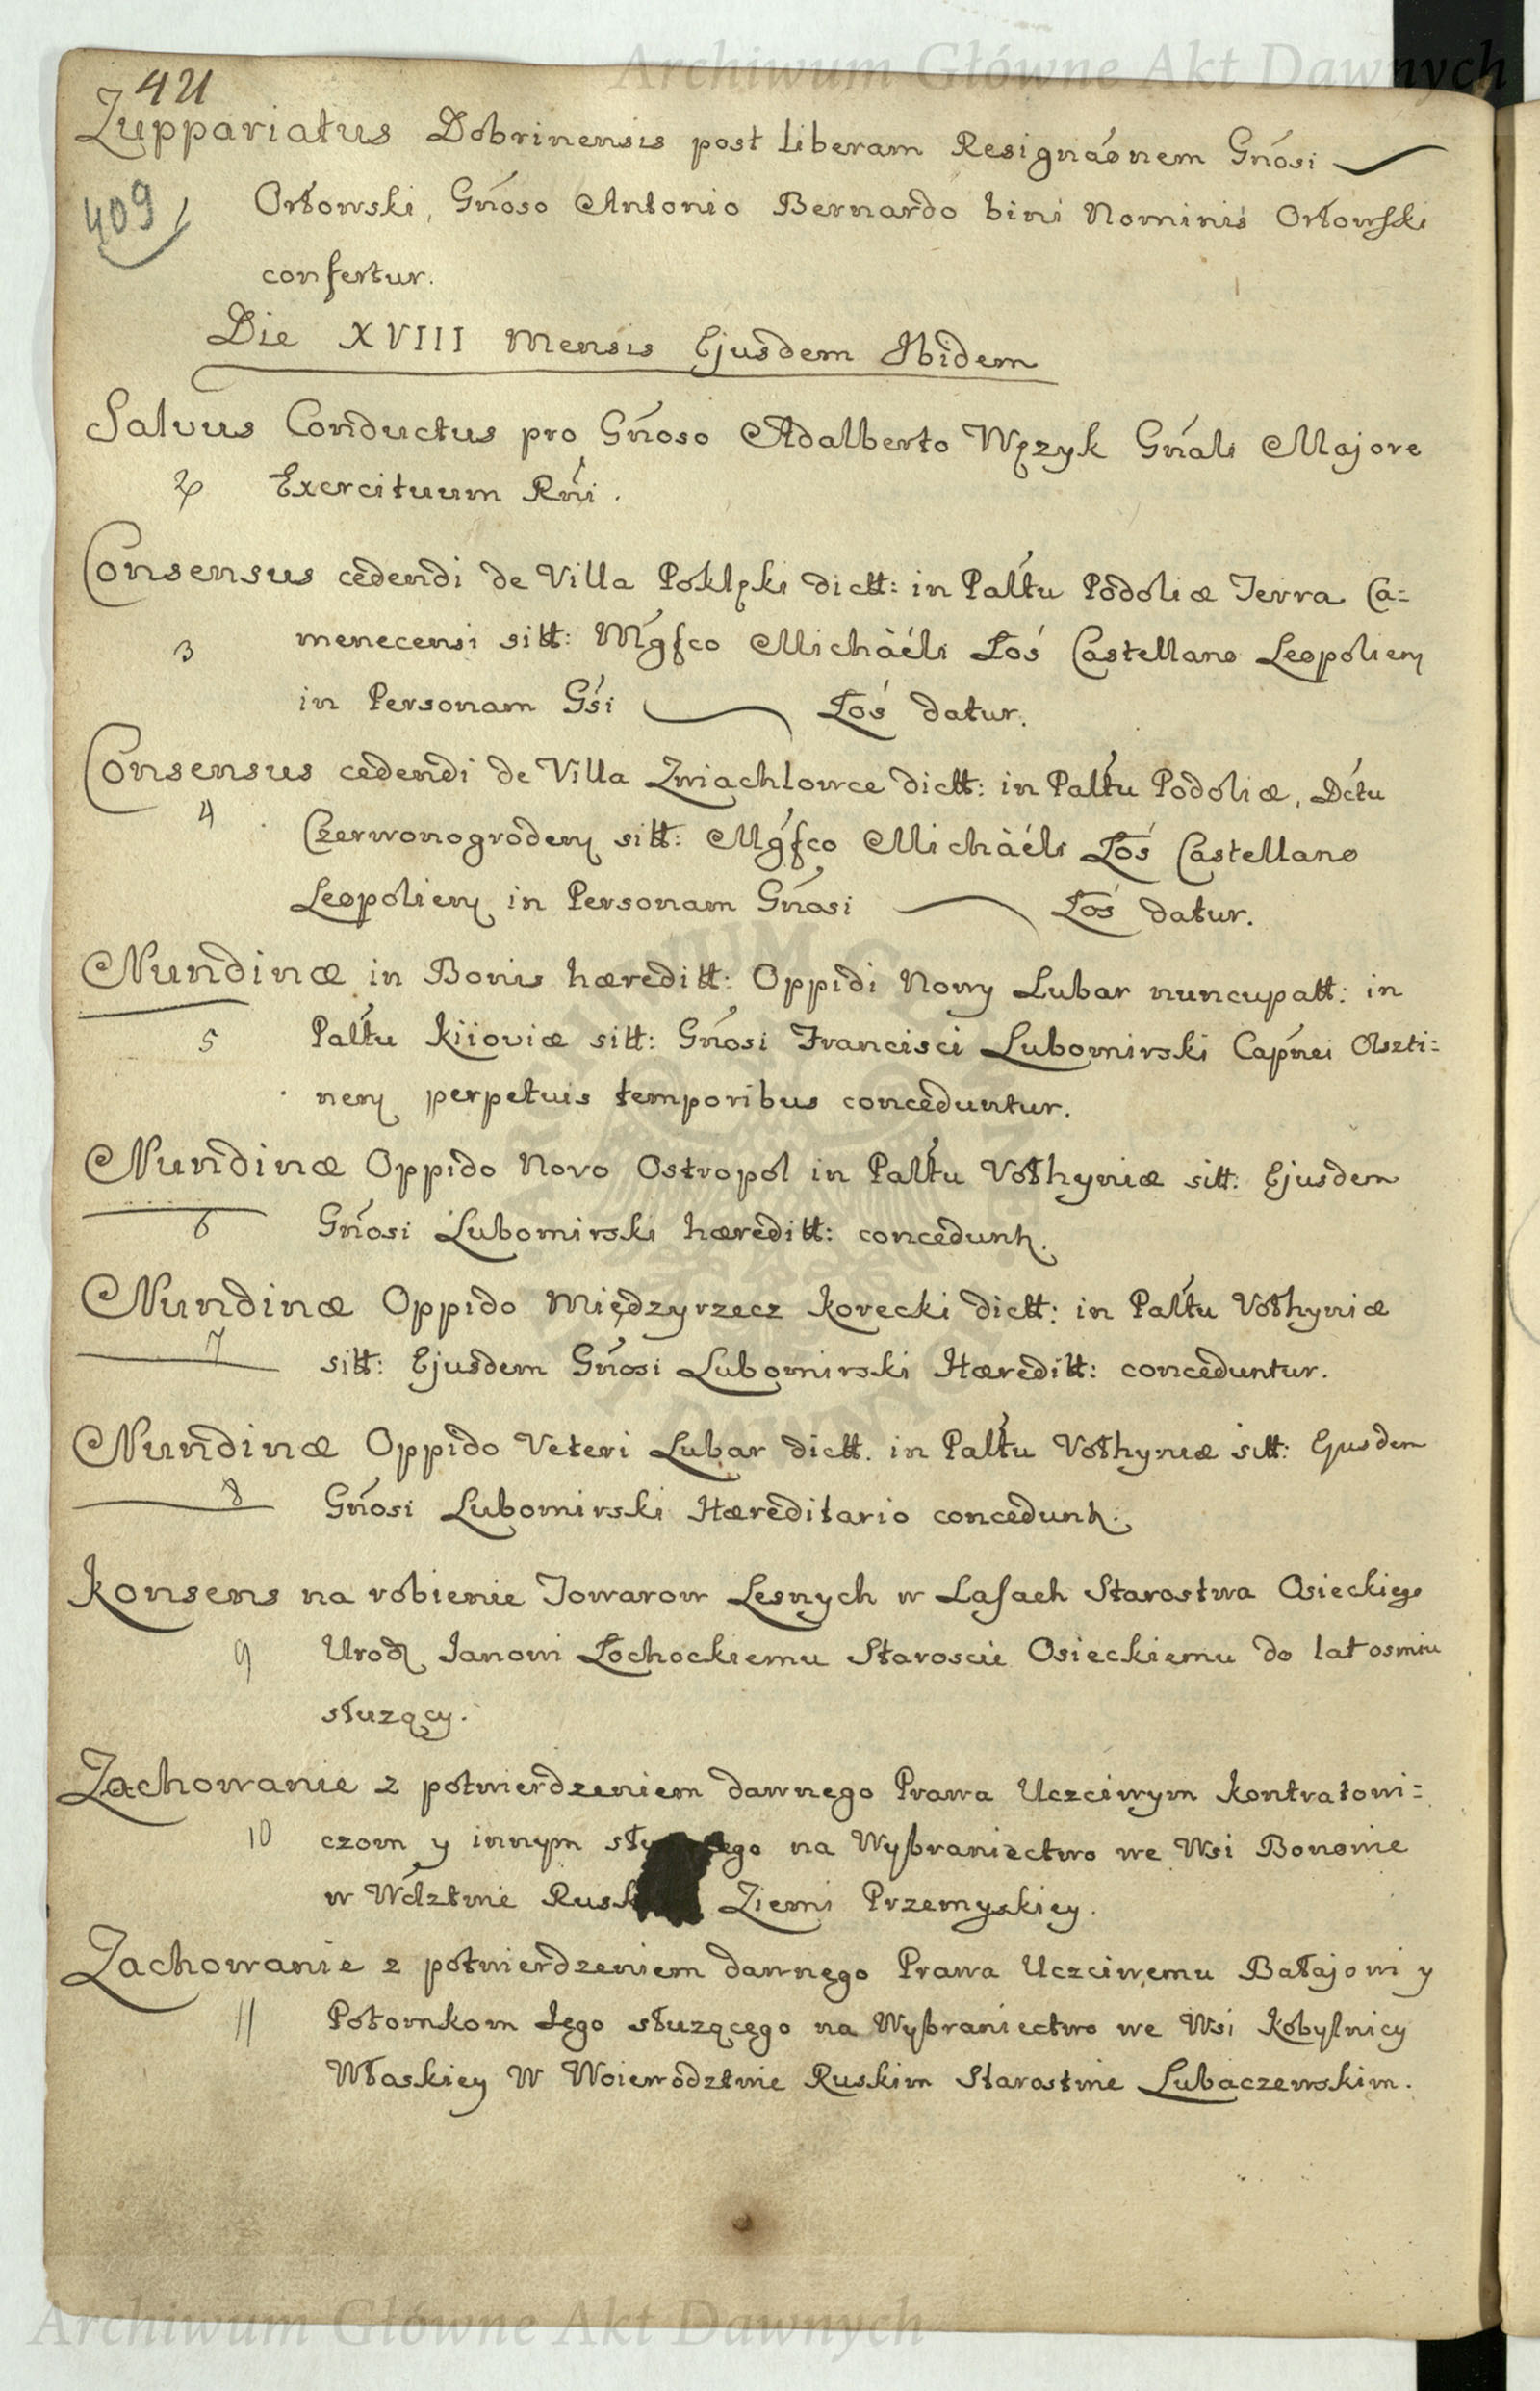 Archiwum Główne Akt Dawnych
421
Zuppariatus Dobrinensis post liberam Resignaónem Gńosi
409
1
Orłowski, Gńoso Antonio Bernardo bini Nominis Orłowſki
confertur.
Die XVIII Mensis Ejusdem Ibidem
Salvus Conductus pro Gńoso Adalberto Węzyk Gńali Majore
2
Exercituum Rńi.
Consensus cedendi de Villa Poklęki dictt: in Palttu Podoliæ Terra Ca=
3
menecensi sitt: Mgfco Michàéli Łoś Castellano Leopolien
in Personam Gśi Łoś datur.
Consensus cedendi de Villa Zwiachlowce dictt: in Palttu Podoliæ, Dctu
4
Czerwonogroden sitt: Mgfco Michàéli Łoś Castellano
Leopolien in Personam Gńosi Łoś datur.
Nundinæ in Bonis hæreditt: Oppidi Nowy Lubar nuncupatt: in
5
Palttu Kiioviæ sitt: Gńosi Francisci Lubomirski Capńei Olszti=
nen perpetuis temporibus conceduntur.
Nundinæ Oppido Novo Ostropol in Palttu Vołhyniæ sitt: Ejusdem
6
Gńosi Lubomirski hæreditt: concedunt.
Nundinæ Oppido Międzyrzecz Korecki dictt: in Palttu Vołhyniæ
7
sitt: Ejusdem Gńosi Lubomirski Hæreditt: conceduntur.
Nundinæ Oppido Veteri Lubar dictt. in Palttu Vołhyniæ sitt: Ejusdem
8
Gńosi Lubomirski Hæreditario concedunt.
Konsens na robienie Towarow Lesnych w Laſach Starostwa Osieckiego
9
Urodz Janowi Łochockiemu Staroscie Osieckiemu do lat osmiu
słuzący.
Zachowanie z potwierdzeniem dawnego Prawa Uczciwym Kontratowi=
10
czom y innym na Wybraniectwo we Wsi Bonowie
w Wdztwie Ziemi Przemyskiey.
Zachowanie z potwierdzeniem dawnego Prawa Uczciwemu Bałajowi y
11
Potomkom Iego słuzącego na Wybraniectwo we Wsi Kobylnicy
Włoskiey W Woiewodztwie Ruskim Starostwie Lubaczewskim.
Archiwum Główne Akt Dawnych